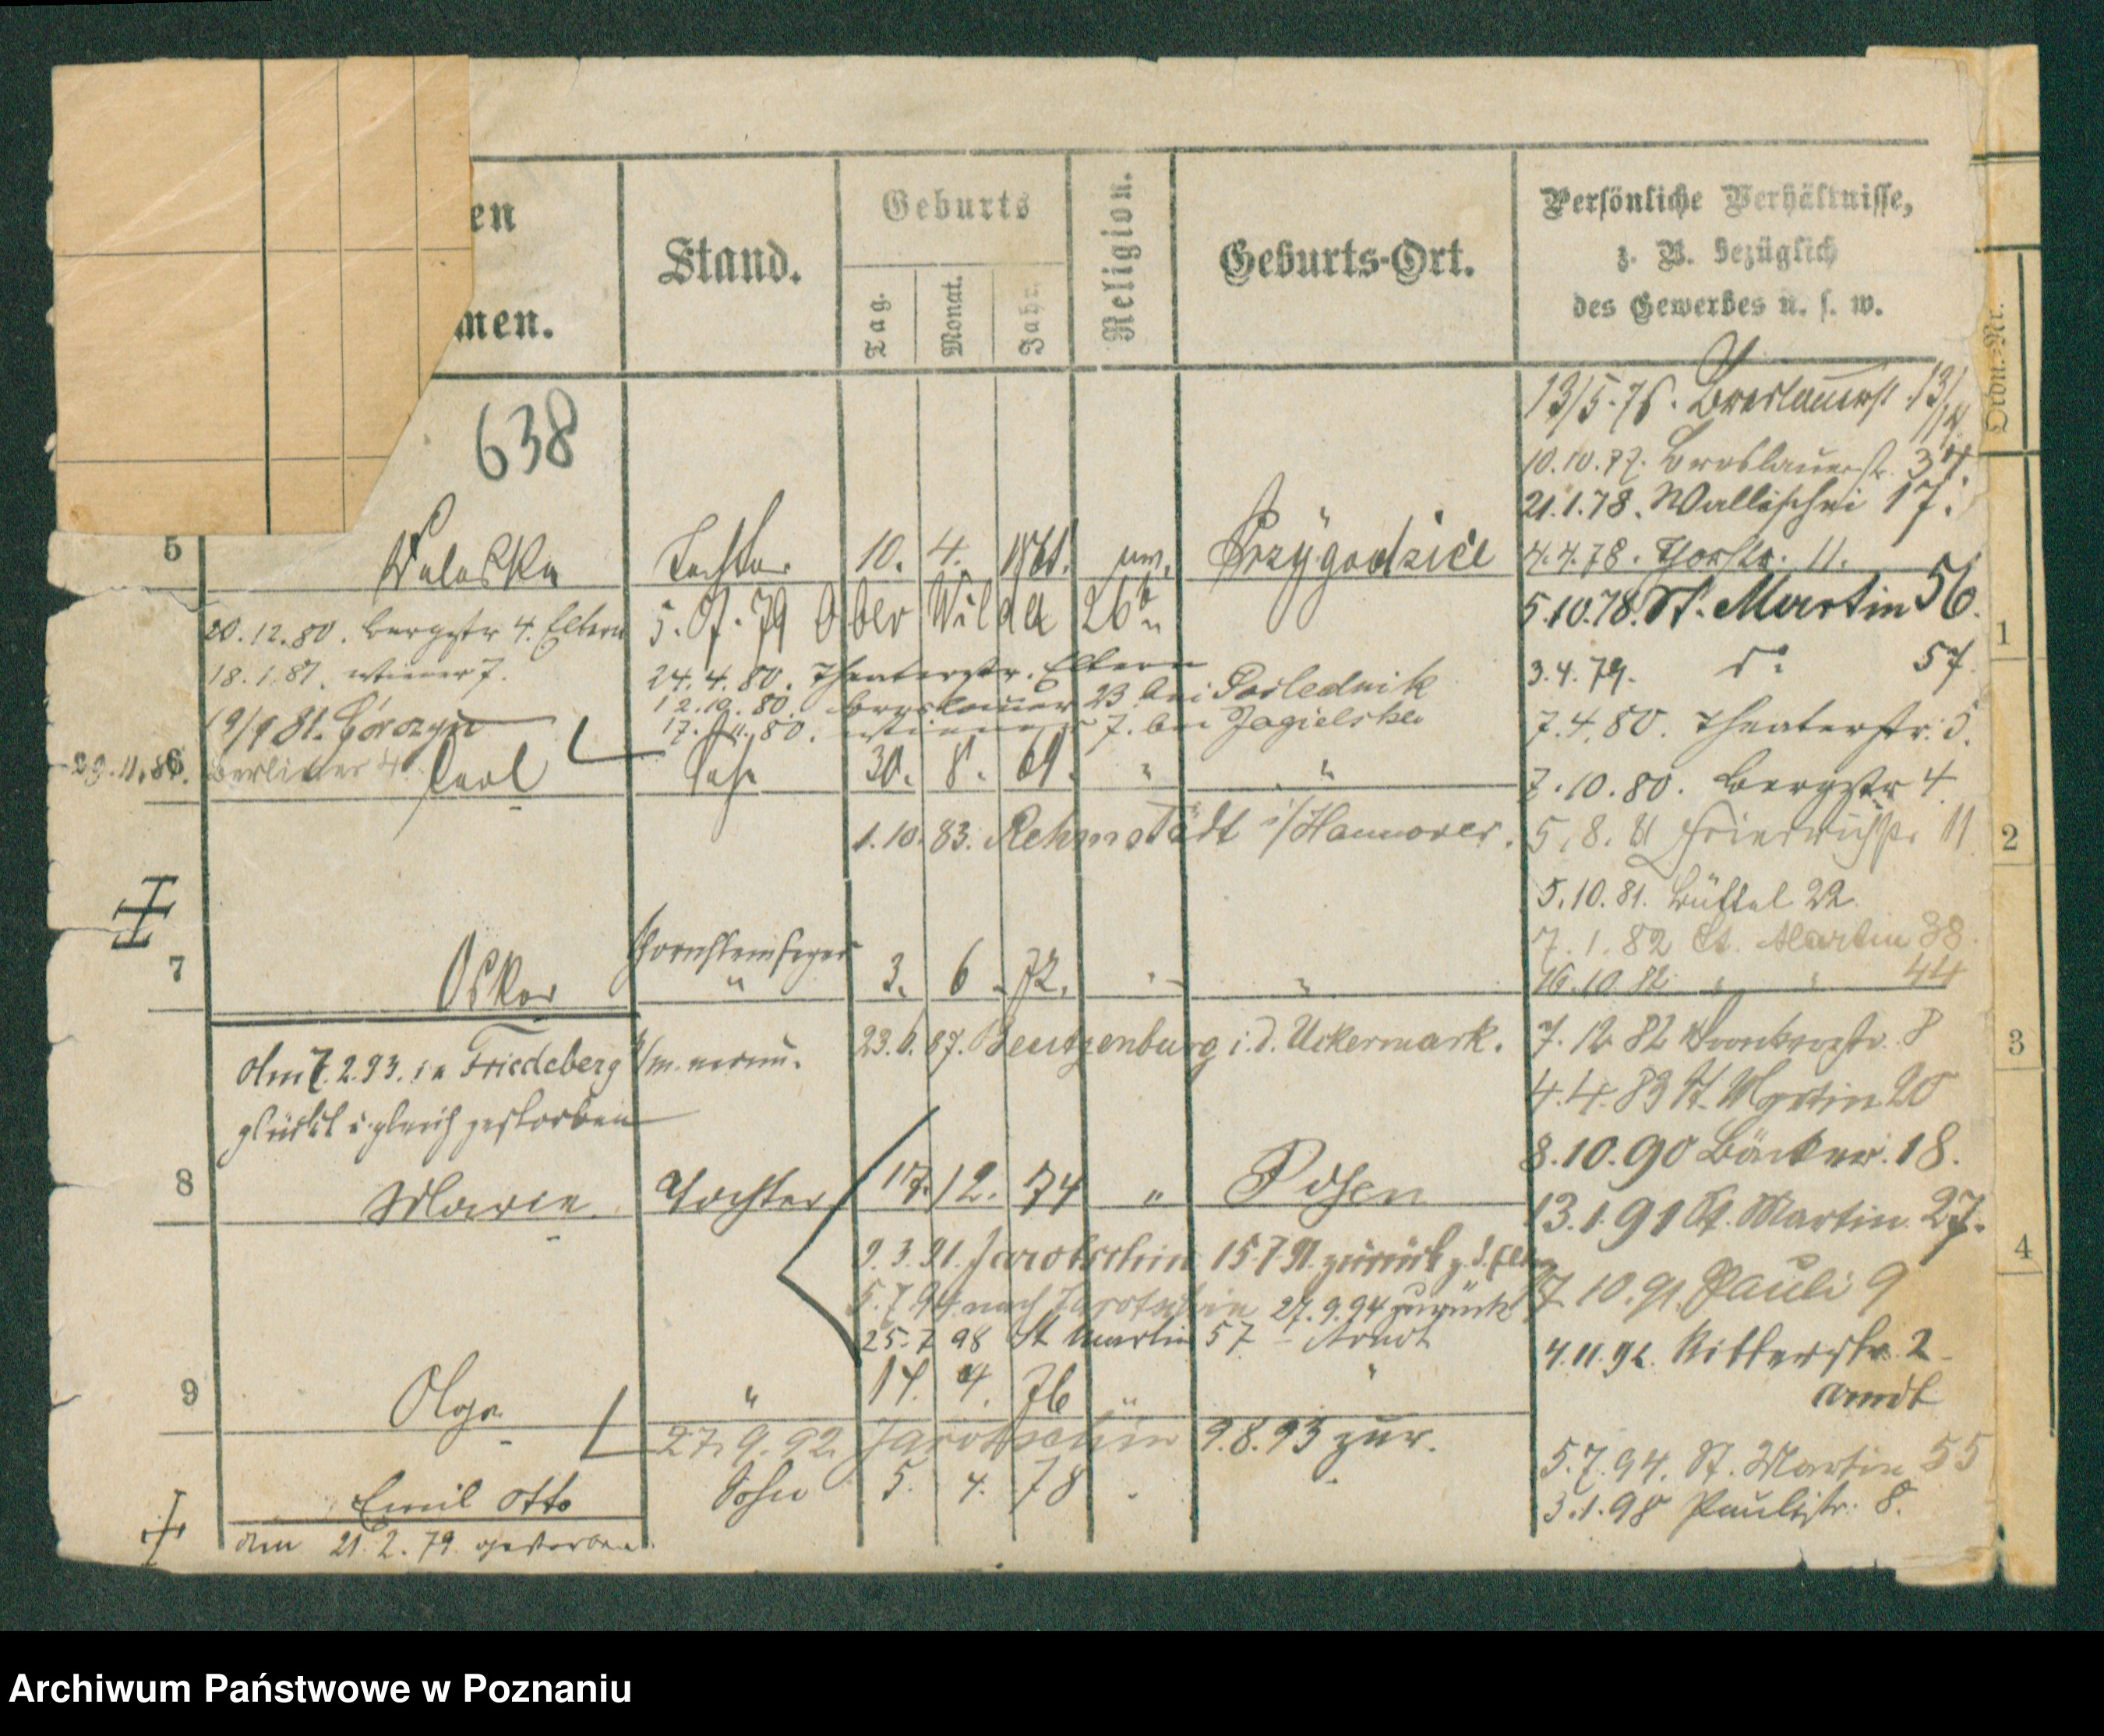 en
men.
Stand.
Geburts
Tag.
Monat.
Jahr.
Religion.
Geburts-Ort.
Persönliche Verhältnisse,
z. B. bezüglich
des Gewerbes u. s. w.
638
13/5.76. Breslauerst. 13/14
10.10.77. Breslauerstr. 34.
21.1.78. Wallischei 17.
5 Valeska Tochter 10. 4. Przygodzice
4.4.78. Thorstr. 11.
5.10.78. St. Martin 56.
20.12.80. Bergstr 4. Eltern
5. 7. 79 Ober Wilda 26
18.1.81. Wiener 7.
24.4.80. Theaterstr. Eltern
3.4.79. do 57
12.10.80. Breslauer 23 bei Poslednik
19/9 81. Górczyn
17. 11. 80. Wiener 7. bei Jagielski
7.4.80. Theaterstr. 5.
29.11.86. Berliner 4
6 Carl Sohn 30. 8. 69. " "
7.10.80. Bergstr 4
1.10.83. i/Hannover.
5.8.81 Friedrichstr. 11
5.10.81. Büttel 22.
7.1.82 St. Martin 38.
Schornsteinfeger
7 Oskar " 3. 6. 72. " "
16.10.82 " " 44
Am 7.2.93. in Friedeberg
23. 87. i. d. Uckermark.
7.12.82 8
4.4.83 St. Martin 20
gestorben
8.10.90 Bäcker. 18.
8 Marie Tochter 17. 12. 74 " Posen
13.1.91 St. Martin 27.
9.3.91. Jarotschin 15.7.91. zurück z. d. Eltern
5.7.94. nach Jarotschin 27.9.94 zurück
7.10.91. Pauli 9
25.7.98 St Martin 57 - Arndt
4.11.92. Ritterstr. 2
Arndt
9 Olga " 14. 4. 76 " "
27.9.92. Jarotschin 9.8.93 zur.
5.7.94. St. Martin 55
Emil Otto Sohn 5. 4. 78
3.1.98 Paulistr. 8.
am 21.2.79. gestorben.
Ordn.-Nr.
1
2
3
4
Archiwum Państwowe w Poznaniu